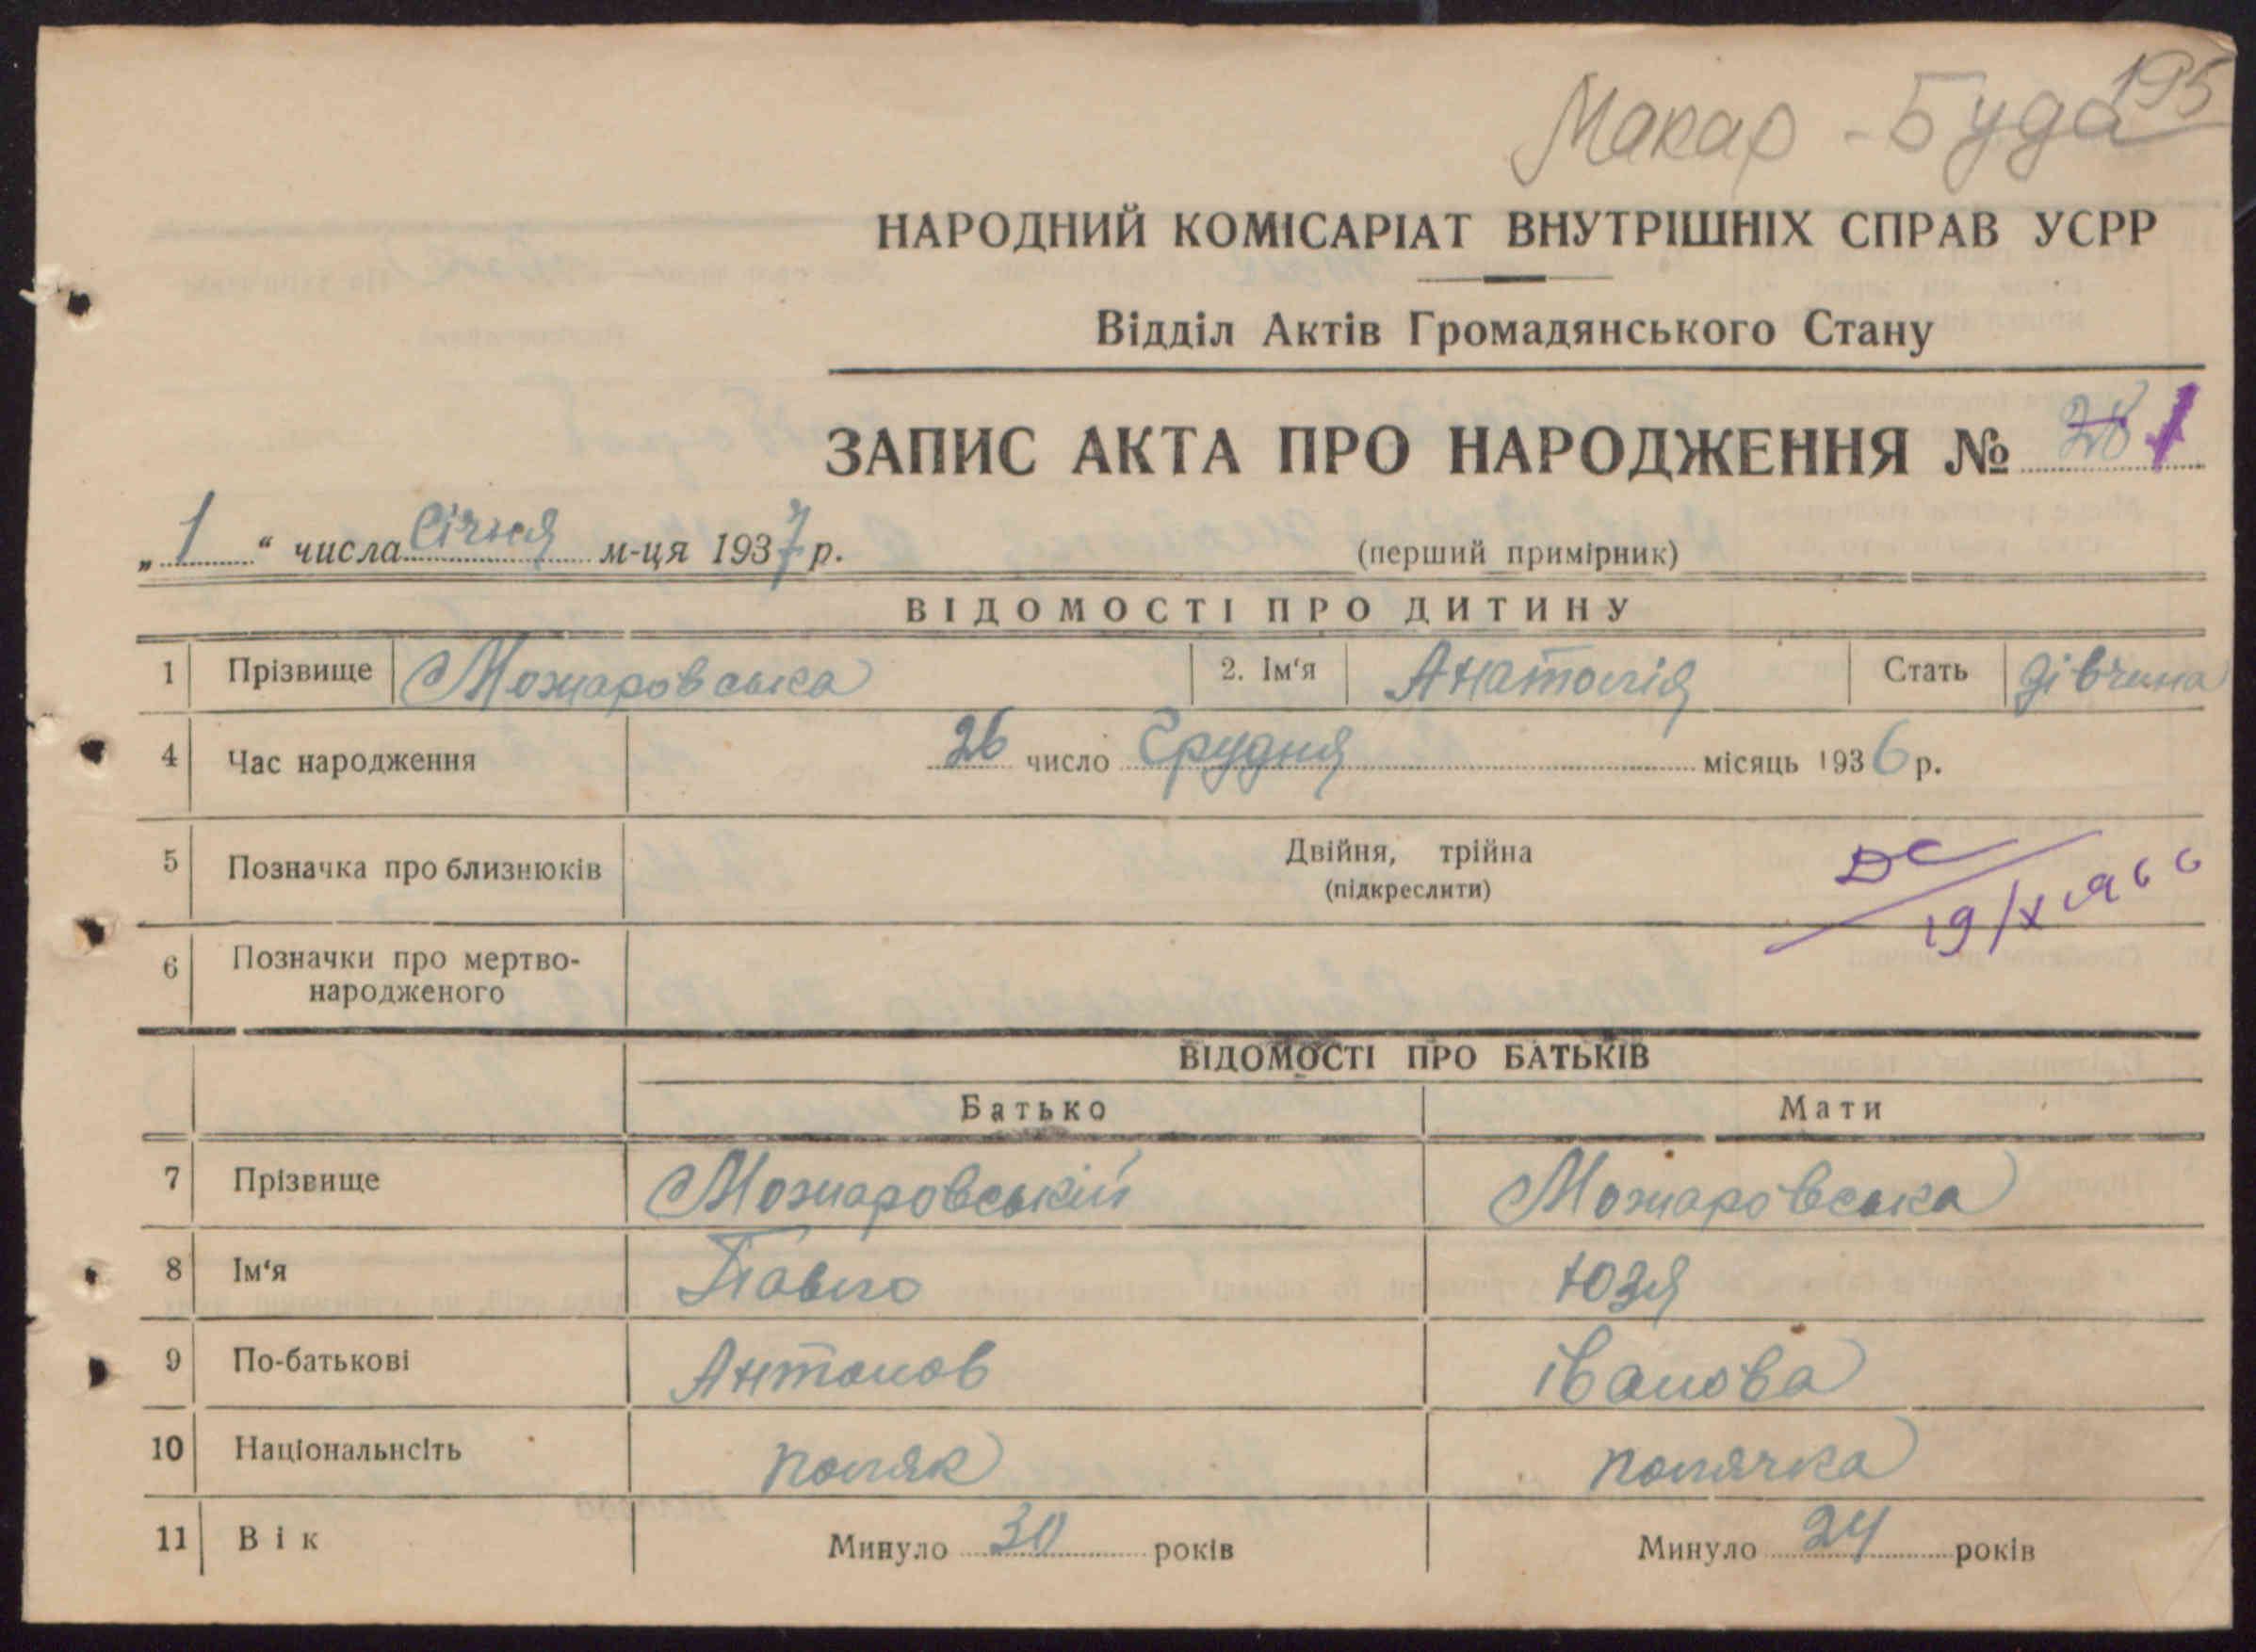 195
Макар-Буда
НАРОДНИЙ КОМІСАРІАТ ВНУТРІШНІХ СПРАВ УСРР
Відділ Актів Громадянського Стану
ЗАПИС АКТА ПРО НАРОДЖЕННЯ № 28 1
„1“ числа Січня м-ця 1937 р.
(перший примірник)
ВІДОМОСТІ ПРО ДИТИНУ
1 Прізвище Можаровська 2. Ім‘я Анатолія Стать дівчина
4 Час народження 26 число Грудня місяць 1936 р.
5 Позначка про близнюків Двійня, трійна
(підкреслити)
ДС
19/X 1966
6 Позначки про мертво-
народженого
ВІДОМОСТІ ПРО БАТЬКІВ
Батько Мати
7 Прізвище Можаровський Можаровська
8 Ім‘я Павло Юзя
9 По-батькові Антонов іванова
10 Національнсіть поляк полячка
11 Вік Минуло 30 років Минуло 24 років